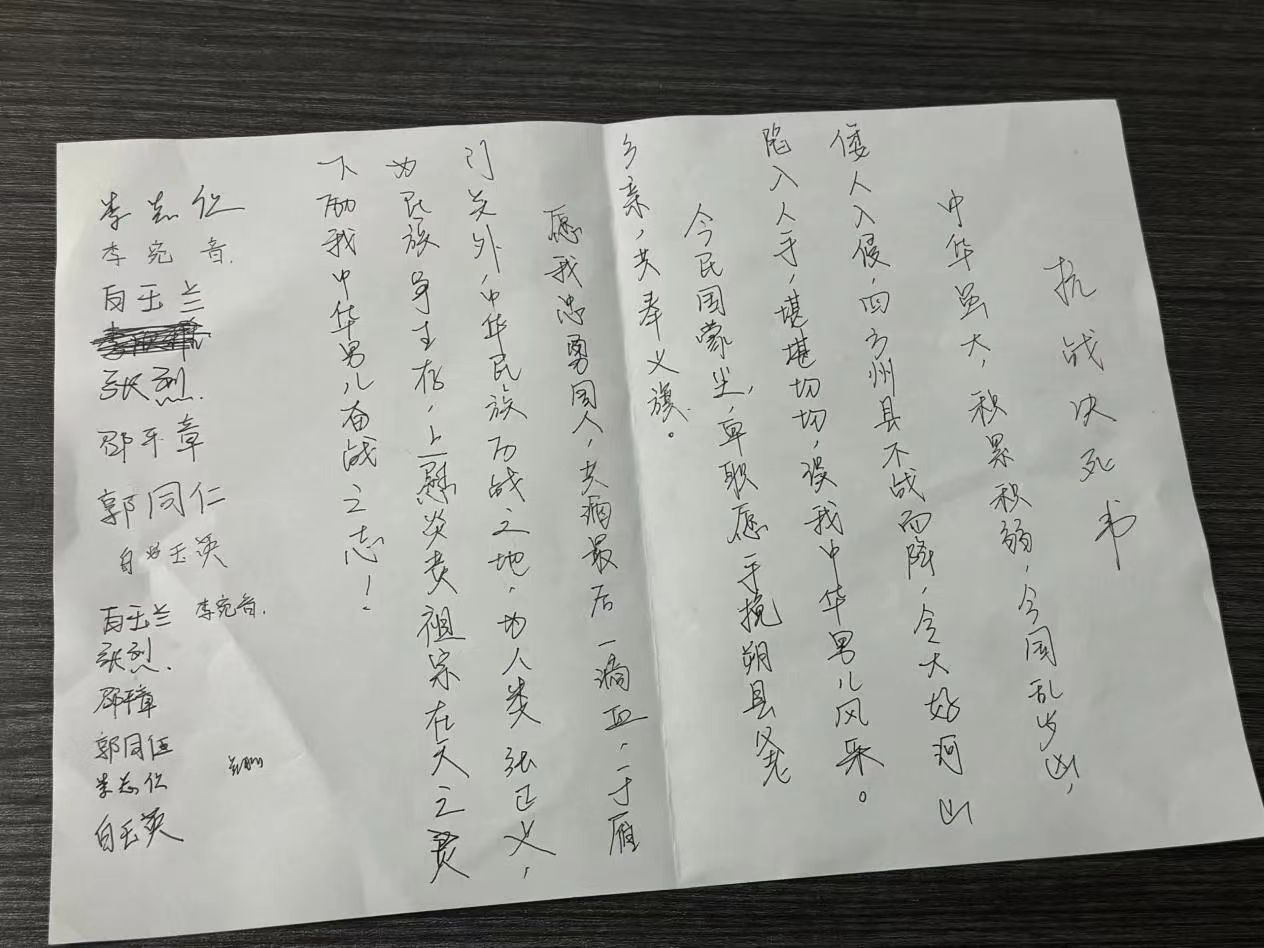 抗战决死书
中华虽大，积累积弱，今国乱岁凶，
倭人入侵，四方州县不战而降，令大好河山
陷入人手，堪堪切切，没我中华男儿风采。
今民国蒙尘，卑职愿手挽朔县父老
乡亲，共奉义旗。
愿我忠勇国人，共洒最后一滴血，于雁
门关外，中华民族历战之地，为人类张正义，
为民族争生存，上慰炎黄祖宗在天之灵
下励我中华男儿奋战之志！
李志仁
李宛音.
白玉兰
张烈.
邵平章
郭同仁
白玉英
白玉兰 李宛音.
张烈.
邵平章
郭同仁
李志仁
白玉英